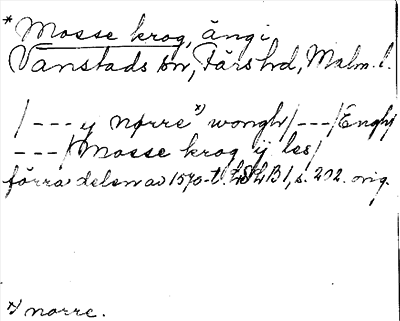 * Mosse krog, äng i
Vanstads sn, Färs hd, Malm. l.
/--- y nørre x) wongh/---/Enghj
---/Mosse krog ij les/
förra delen av 1570-t. LSLB1, s. 202. orig.
x) norre.